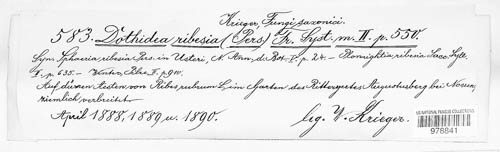 Krieger, Fungi saxonici.
583. Dothidea ribesia (Pers.) Fr. Syst. m. II. p. 550.
Syn. Sphaeria ribesia Pers. in Usteri, N. Ann. d. Bot. V. p. 24. – Plowrightia ribesia Sacc. Syll.
II. p. 635. – Winter, Pilze II. p. 910.
Auf dürren Aesten von Ribes rubrum L. im Garten des Rittergutes Augustusberg bei Nossen,
ziemlich verbreitet.
April 1888, 1889 u. 1890.
leg. W. Krieger.
US NATIONAL FUNGUS COLLECTIONS
978841